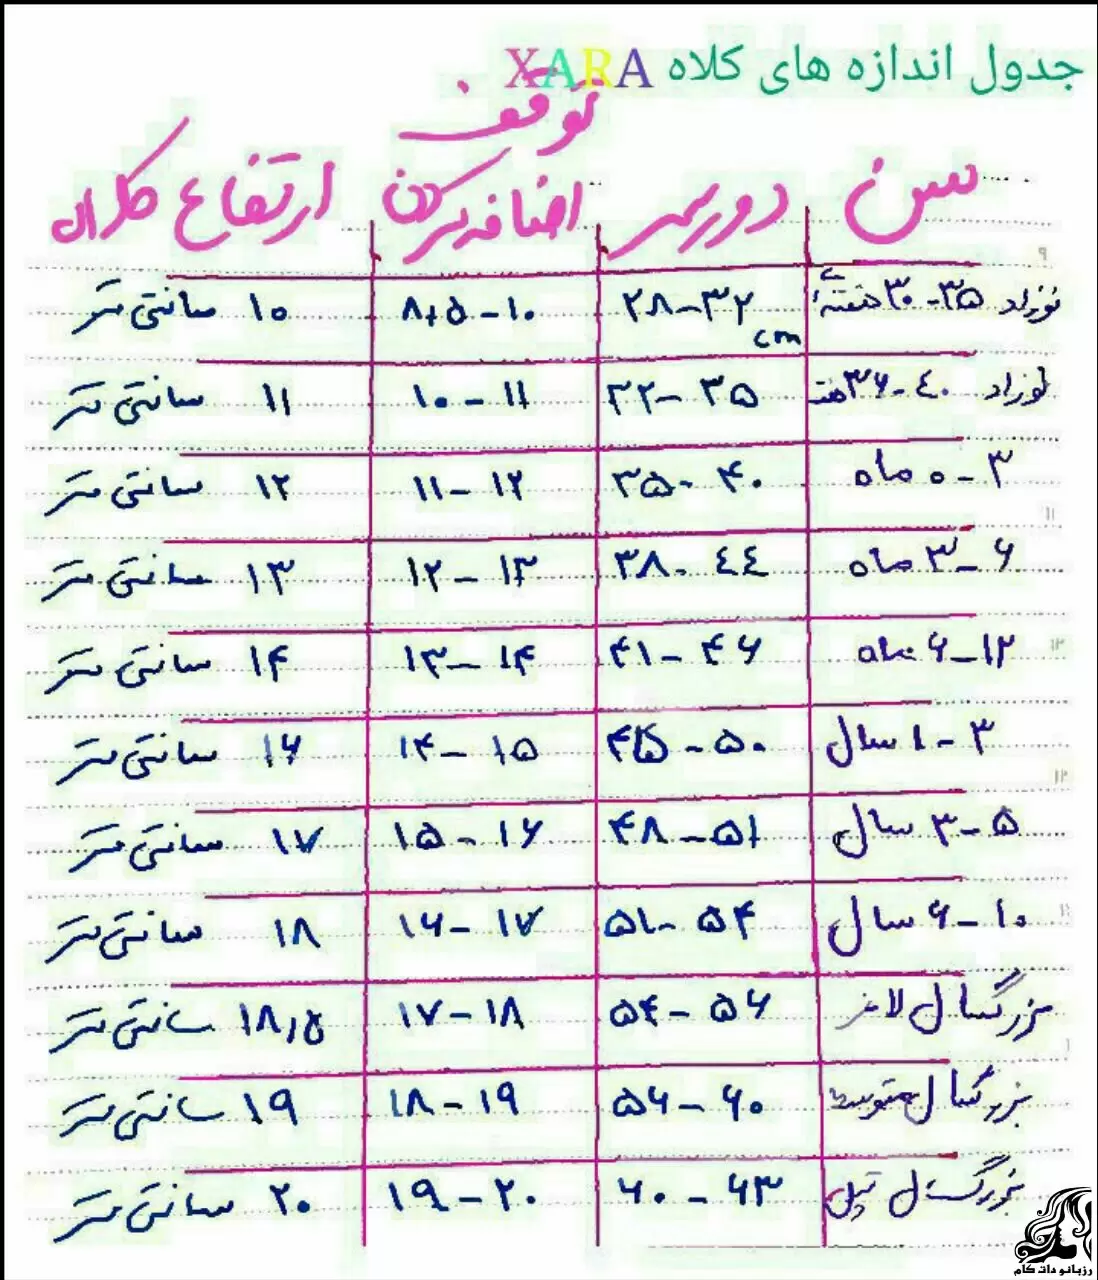 جدول اندازه های کلاه XARA
سن دور سر توقف اضافه کردن ارتفاع کلاه
نوزاد ۳۵-۳۰ هفته ۲۸-۳۲ cm ۸,۵-۱۰ ۱۰ سانتی متر
نوزاد ۴۰-۳۶ هفته ۳۲-۳۵ ۱۰-۱۱ ۱۱ سانتی متر
۳-۰ ماه ۳۵-۴۰ ۱۱-۱۲ ۱۲ سانتی متر
۶-۳ ماه ۳۸-۴۴ ۱۲-۱۳ ۱۳ سانتی متر
۱۲-۶ ماه ۴۱-۴۶ ۱۳-۱۴ ۱۴ سانتی متر
۳-۱ سال ۴۵-۵۰ ۱۴-۱۵ ۱۶ سانتی متر
۵-۳ سال ۴۸-۵۱ ۱۵-۱۶ ۱۷ سانتی متر
۱۰-۶ سال ۵۱-۵۴ ۱۶-۱۷ ۱۸ سانتی متر
بزرگسال لاغر ۵۴-۵۶ ۱۷-۱۸ ۱۸,۵ سانتی متر
بزرگسال متوسط ۵۶-۶۰ ۱۸-۱۹ ۱۹ سانتی متر
بزرگسال تپل ۶۰-۶۳ ۱۹-۲۰ ۲۰ سانتی متر
رزبانو دات کام